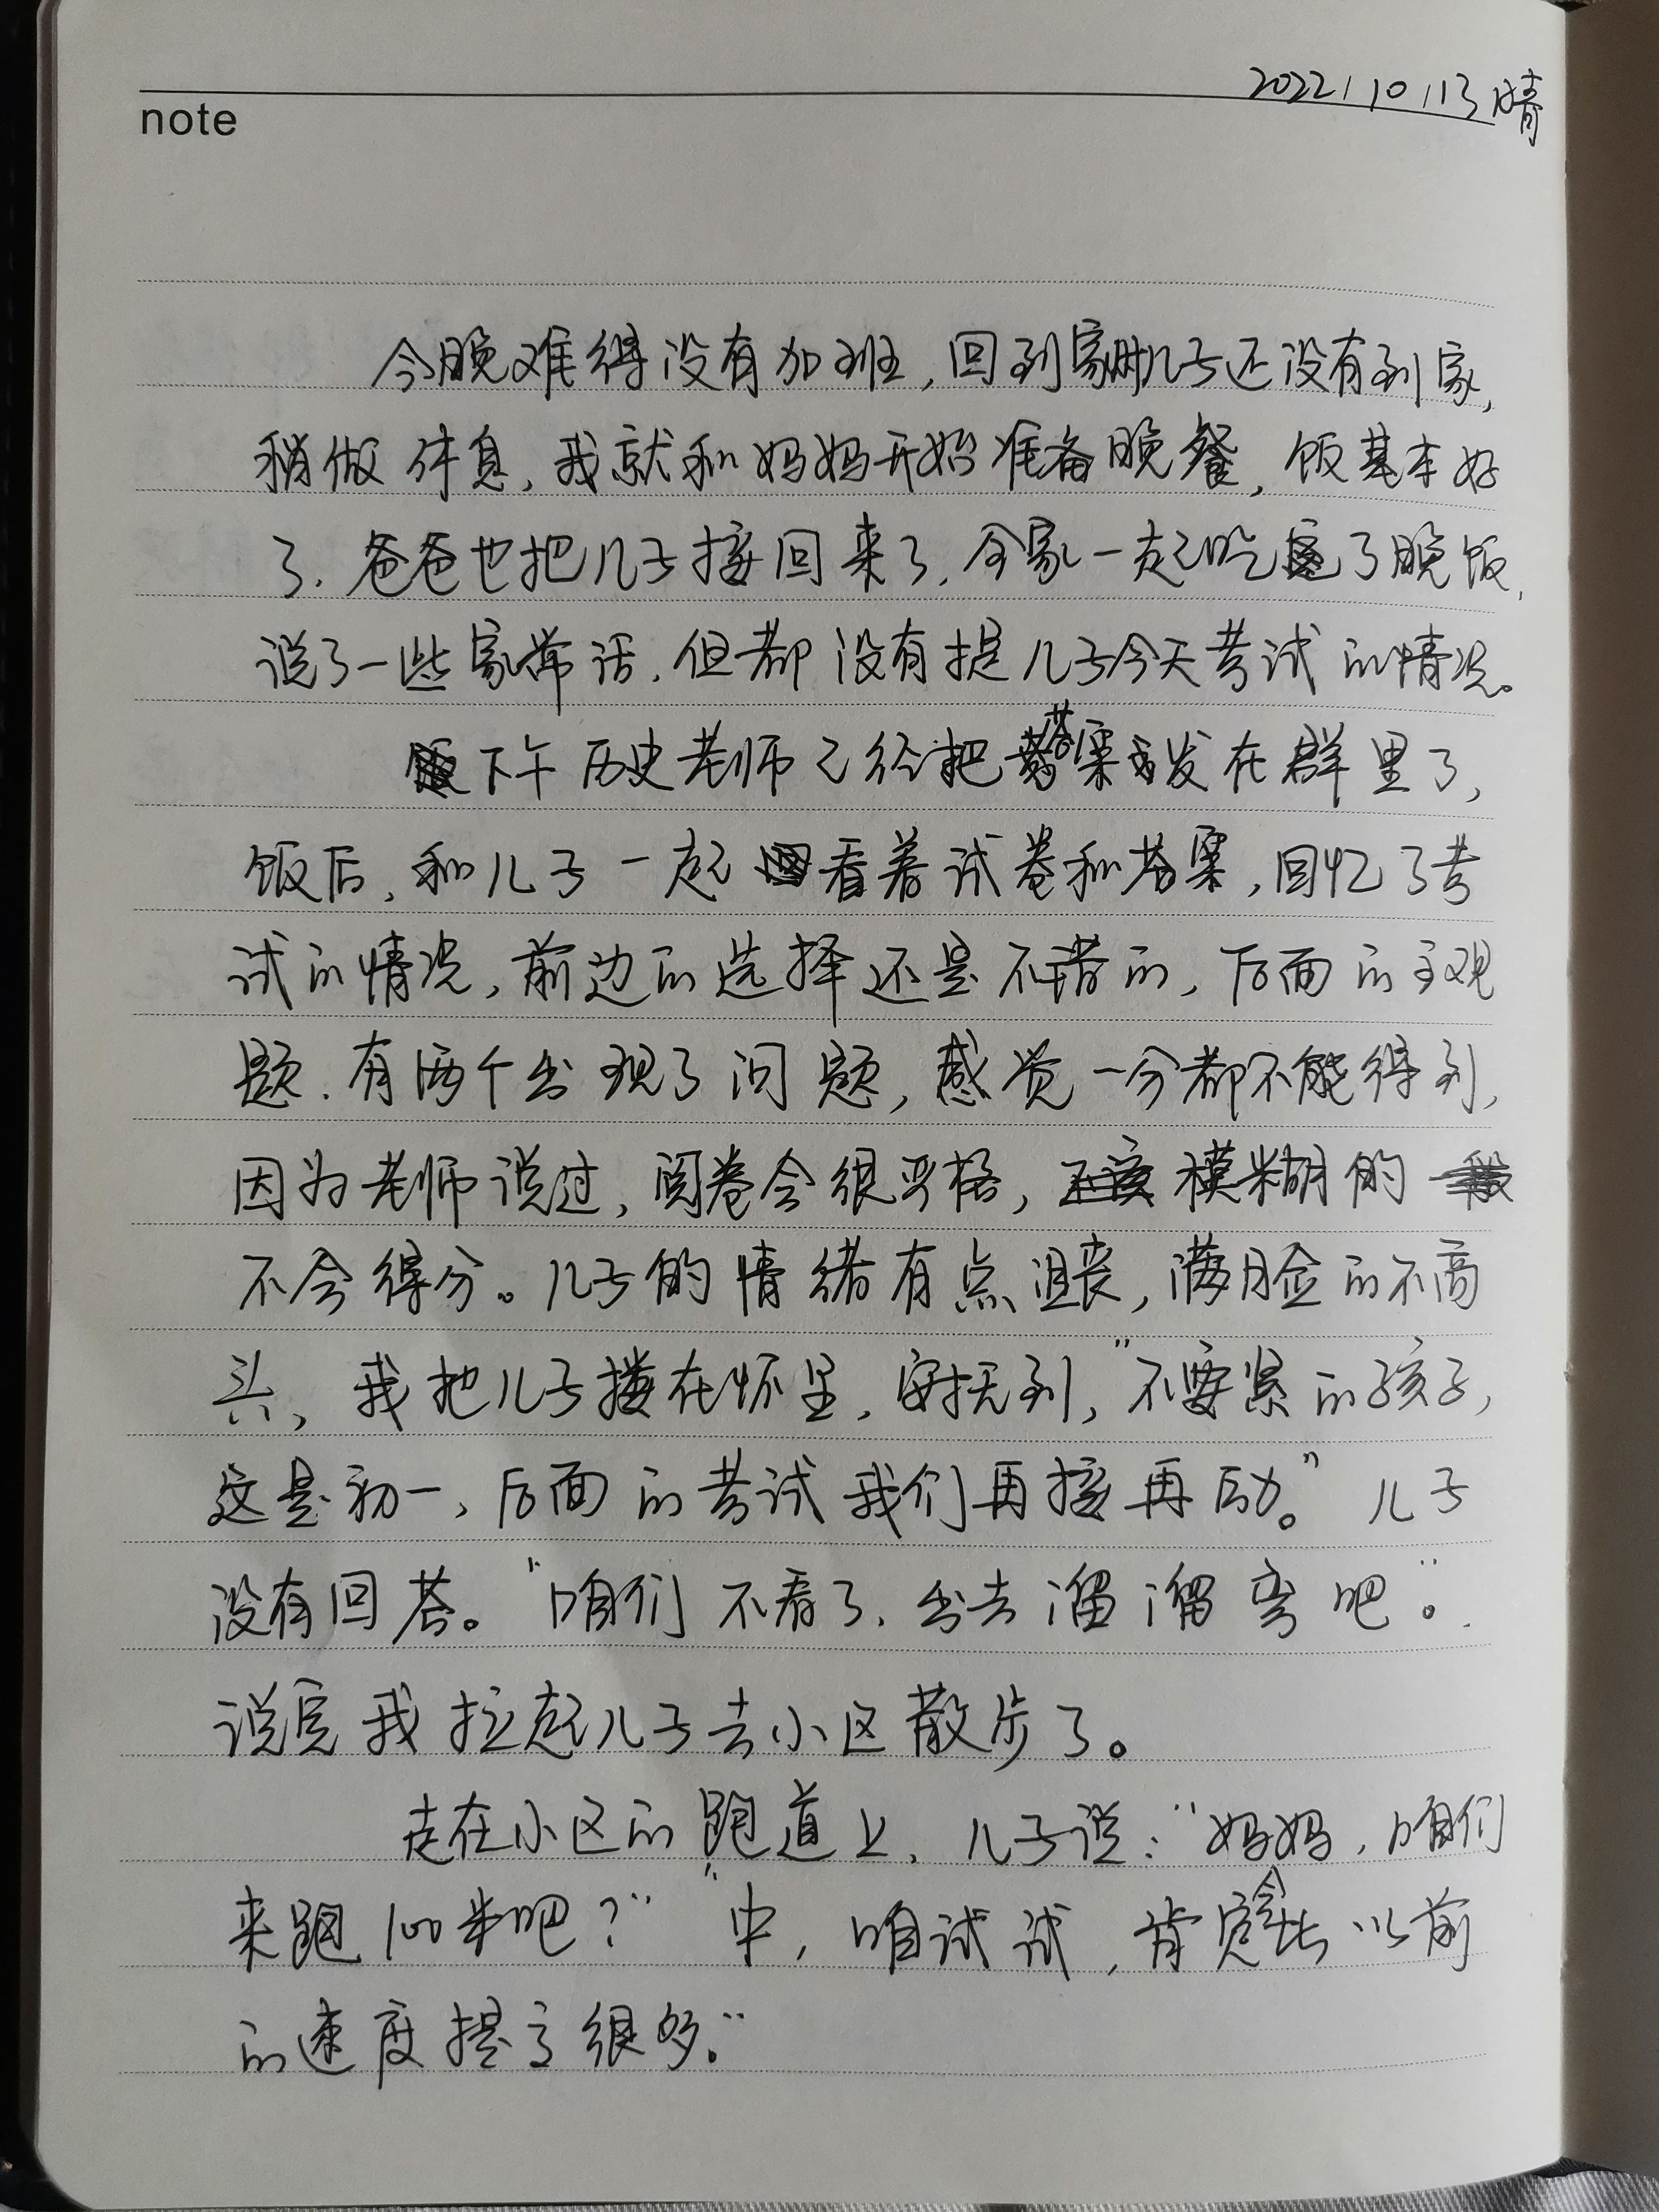 2022.10.13 晴
note
今晚难得没有加班,回到家时儿子还没有到家,
稍做休息,我就和妈妈开始准备晚餐,饭基本好
了.爸爸也把儿子接回来了.全家一起吃了晚饭,
说了一些家常话.但都没有提儿子今天考试的情况。
下午历史老师已经把答案发在群里了,
饭后,和儿子一起看着试卷和答案,回忆了考
试的情况,前边的选择还是不错的,后面的主观
题.有两个出现了问题,感觉一分都不能得到,
因为老师说过,阅卷会很严格,模糊的
不会得分。儿子的情绪有点沮丧,满脸的不高
兴,我把儿子搂在怀里,安抚到,"不要紧的孩子,
这是初一,后面的考试我们再接再励。"儿子
没有回答。"咱们不看了.出去溜溜弯吧"。
说完我拉起儿子去小区散步了。
走在小区的跑道上.儿子说:"妈妈,咱们
来跑100米吧?""中,咱试试,肯定会比以前
的速度提高很多."